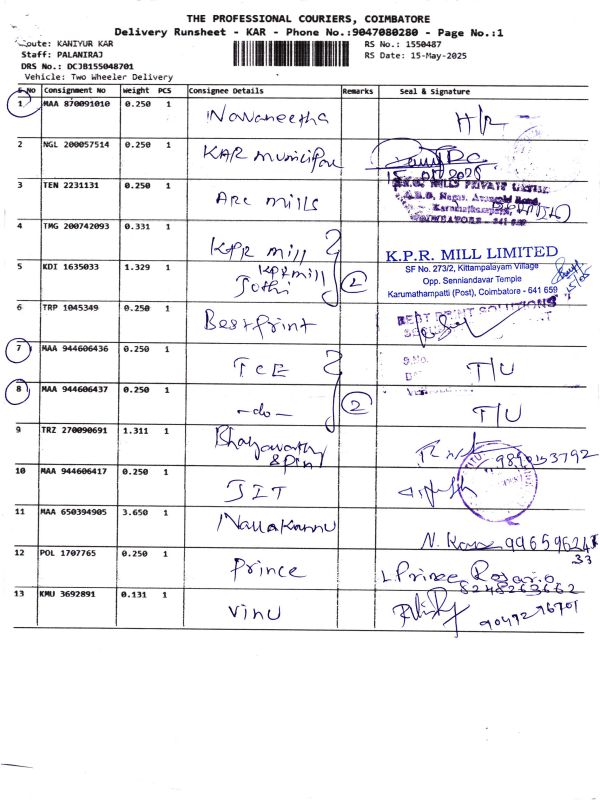 THE PROFESSIONAL COURIERS, COIMBATORE
Delivery Runsheet - KAR - Phone No.:9047080280 - Page No.:1
Route: KANIYUR KAR
RS No.: 1550487
Staff: PALANIRAJ
RS Date: 15-May-2025
DRS No.: DCJB155048701
Vehicle: Two Wheeler Delivery
S No Consignment No Weight PCS Consignee Details Remarks Seal & Signature
1 MAA 870091010 0.250 1 Navaneetha H/R
2 NGL 200057514 0.250 1 KAR municipal
3 TEN 2231131 0.250 1 Arc mills
MILLS PRIVATE
4 TMG 200742093 0.331 1 KPR mill
K.P.R. MILL LIMITED
SF No. 273/2, Kittampalayam Village
Opp. Senniandavar Temple
Karumathampatti (Post), Coimbatore - 641 659
5 KDI 1635033 1.329 1 KPR mill 2
Jothi
6 TRP 1045349 0.250 1 Bestprint
BEST PRINT SOLUTIONS
7 MAA 944606436 0.250 1 TCE T/U
8 MAA 944606437 0.250 1 -do- 2 T/U
9 TRZ 270090691 1.311 1
10 MAA 944606417 0.250 1 JIT
11 MAA 650394905 3.650 1 Nallakannu
12 POL 1707765 0.250 1 Prince L. Prince Rosario
8248263662
13 KMU 3692891 0.131 1 Vinu